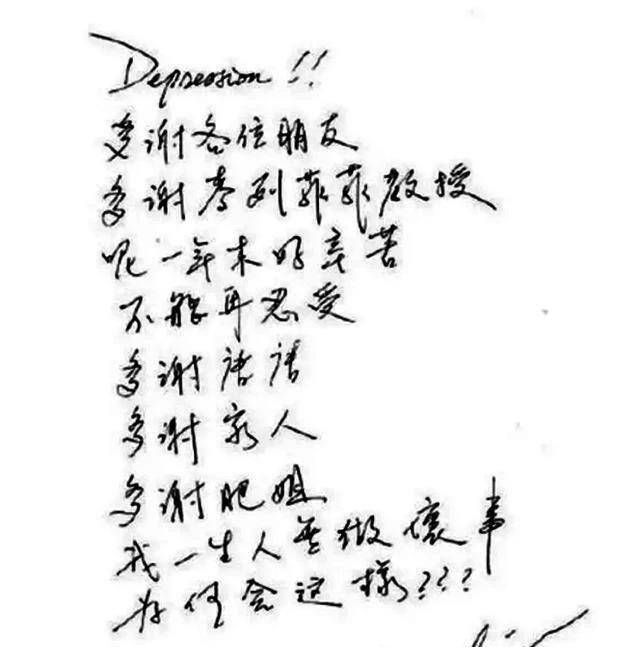 Depression!!
多谢各位朋友
多谢麦列菲菲教授
呢一年来好辛苦
不能再忍受
多谢唐唐
多谢家人
多谢肥姐
我一生人无做壞事
为何会这樣???